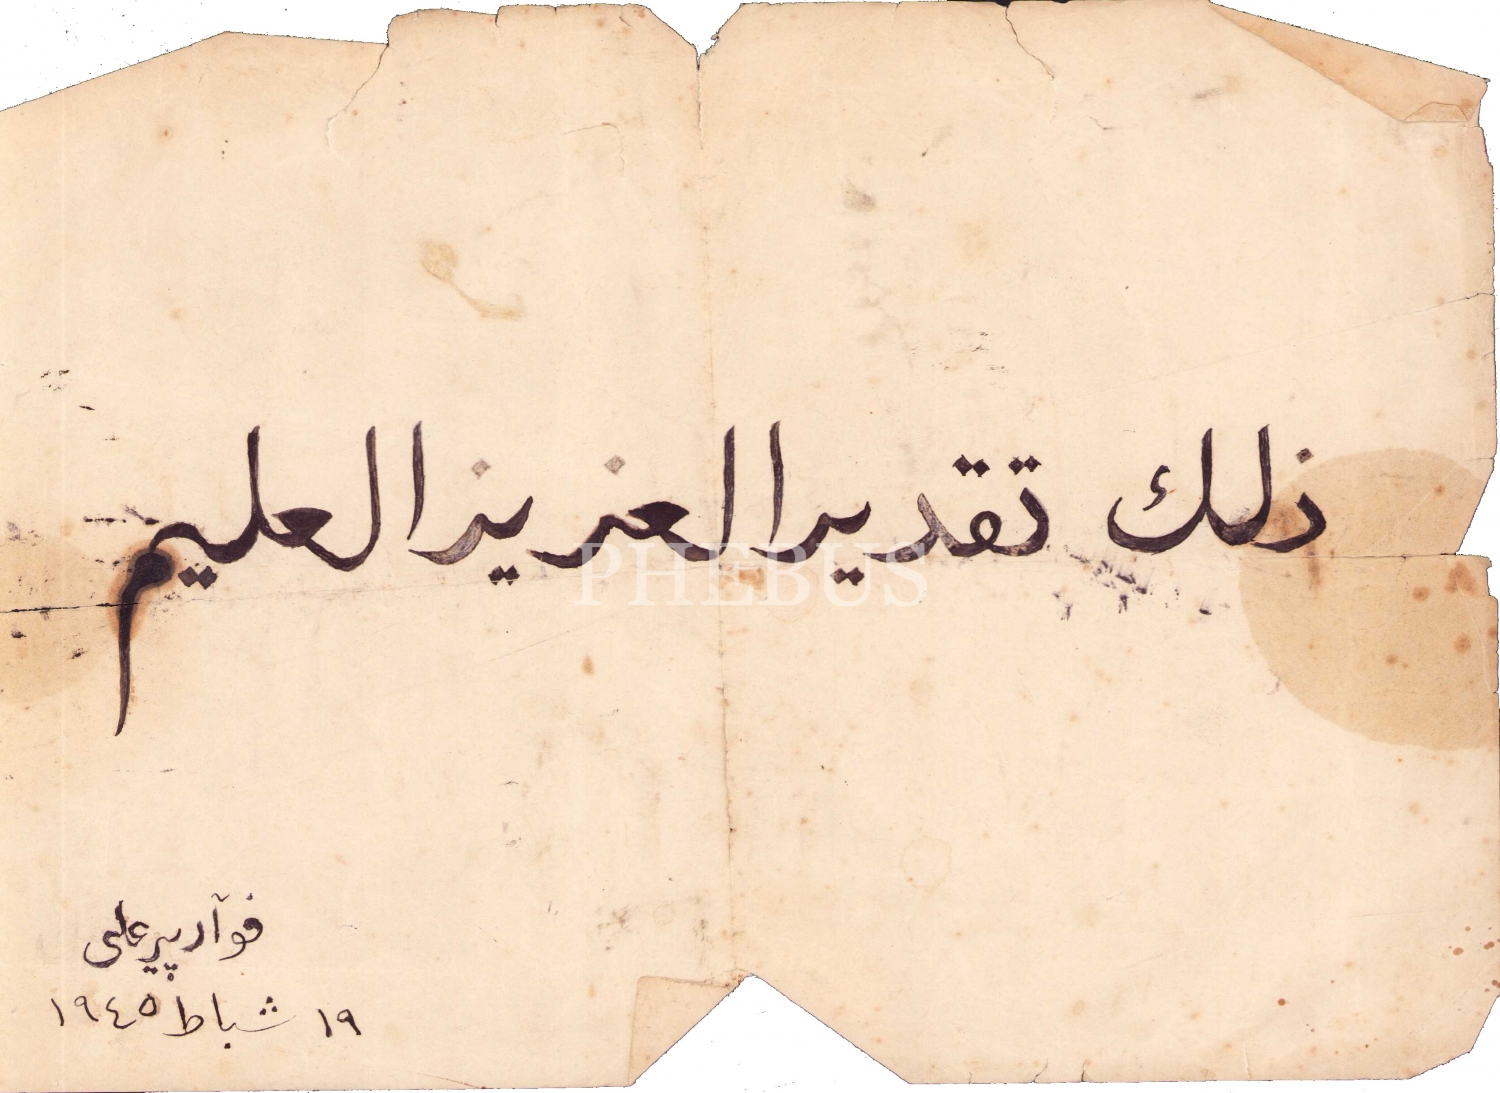 ذلك تقديرا لعزيز العليم
PHEBUS
فوآد پير علی
١٩ شباط ١٩٤٥